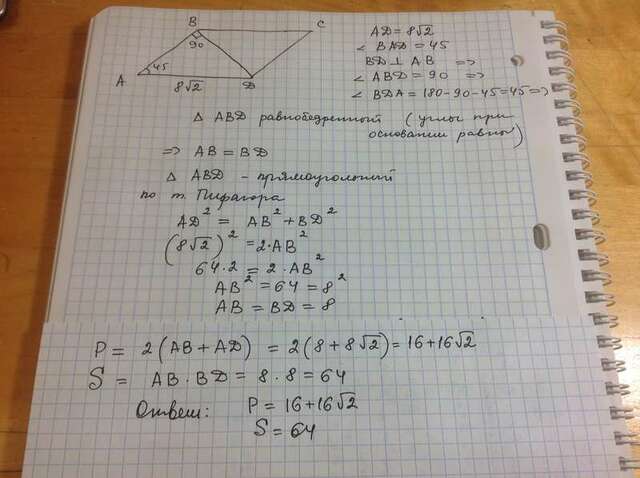 B
C
90
A
45
8√2
D
AD = 8√2
∠ BAD = 45
BD ⊥ AB =>
∠ ABD = 90 =>
∠ BDA = 180-90-45=45 =>
Δ ABD равнобедренный (углы при
основании равны)
=> AB = BD
Δ ABD - прямоугольний
по т. Пифагора
AD² = AB² + BD²
(8√2)² = 2·AB²
64·2 = 2·AB²
AB² = 64 = 8²
AB = BD = 8
P = 2(AB + AD) = 2(8 + 8√2) = 16 + 16√2
S = AB · BD = 8 · 8 = 64
Ответ: P = 16 + 16√2
S = 64